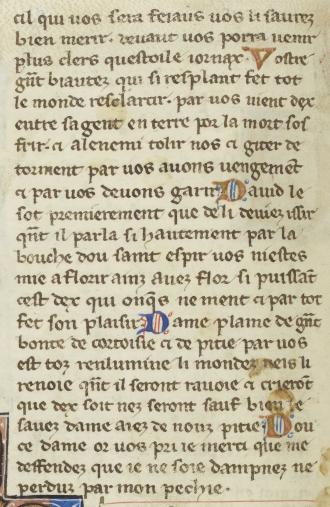 cil qui uos sera feiaus uos li saurez
bien merir. deuant uos porra uenir
plus clers questoile iornax. Vostre
gñt biautez qui si resplant fet tot
le monde resclarcir. par uos uient dex
entre sa gent en terre por la mort sof
frir. ⁊ alenemi tolir nos ⁊ giter de
torment par uos auons uengement
⁊ par uos deuons garir. Dauid le
sot premierement que de li deuiez issir
qñt il parla si hautement par la
bouche dou saint espir uos niestes
mie a florir ainz auez flor si puissãt
cest dex qui onq̃s ne ment ⁊ par tot
fet son plaisir. Dame plaine de gñt
bonte de cortoisie ⁊ de pitie par uos
est toz renlumine li mondes neis li
renoie qñt il seront rauoie ⁊ crierõt
que dex soit nez seront sauf bien le
sauez dame aiez de nouz pitie. Dou
ce dame or uos pri ie merci que me
deffendez que ie ne soie dampnez ne
perduz par mon pechie.